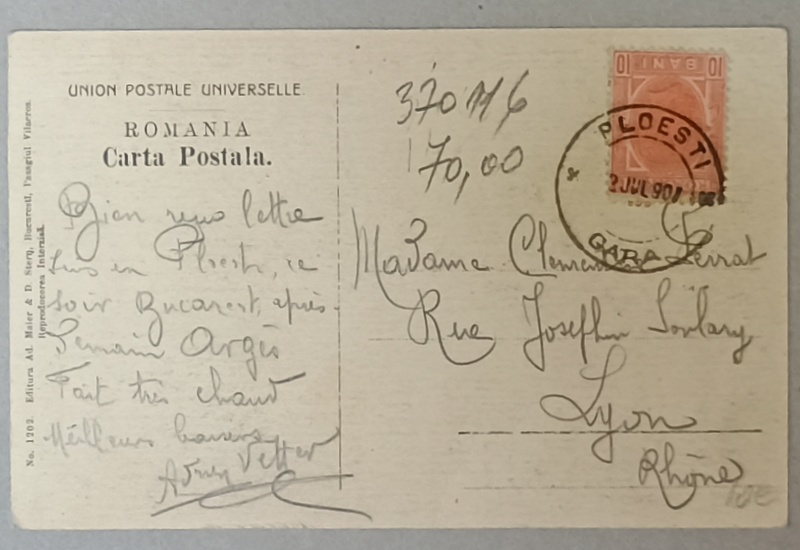 UNION POSTALE UNIVERSELLE
ROMANIA
Carta Postala.
No. 1202. Editura Ad. Maier & D. Stern, Bucuresti, Pasagiul Vilacros.
Reproducerea Interzisă.
Bien reçu lettre
suis en Ploesti, ce
soir Bucarest, après-
demain Argès
Fait très chaud
Meilleurs baisers
Vetter
370116
70,00
10 BANI 10
PLOESTI
2 JUL 907
GARA
Madame Perrat
Rue Joséphin Soulary
Lyon
Rhône